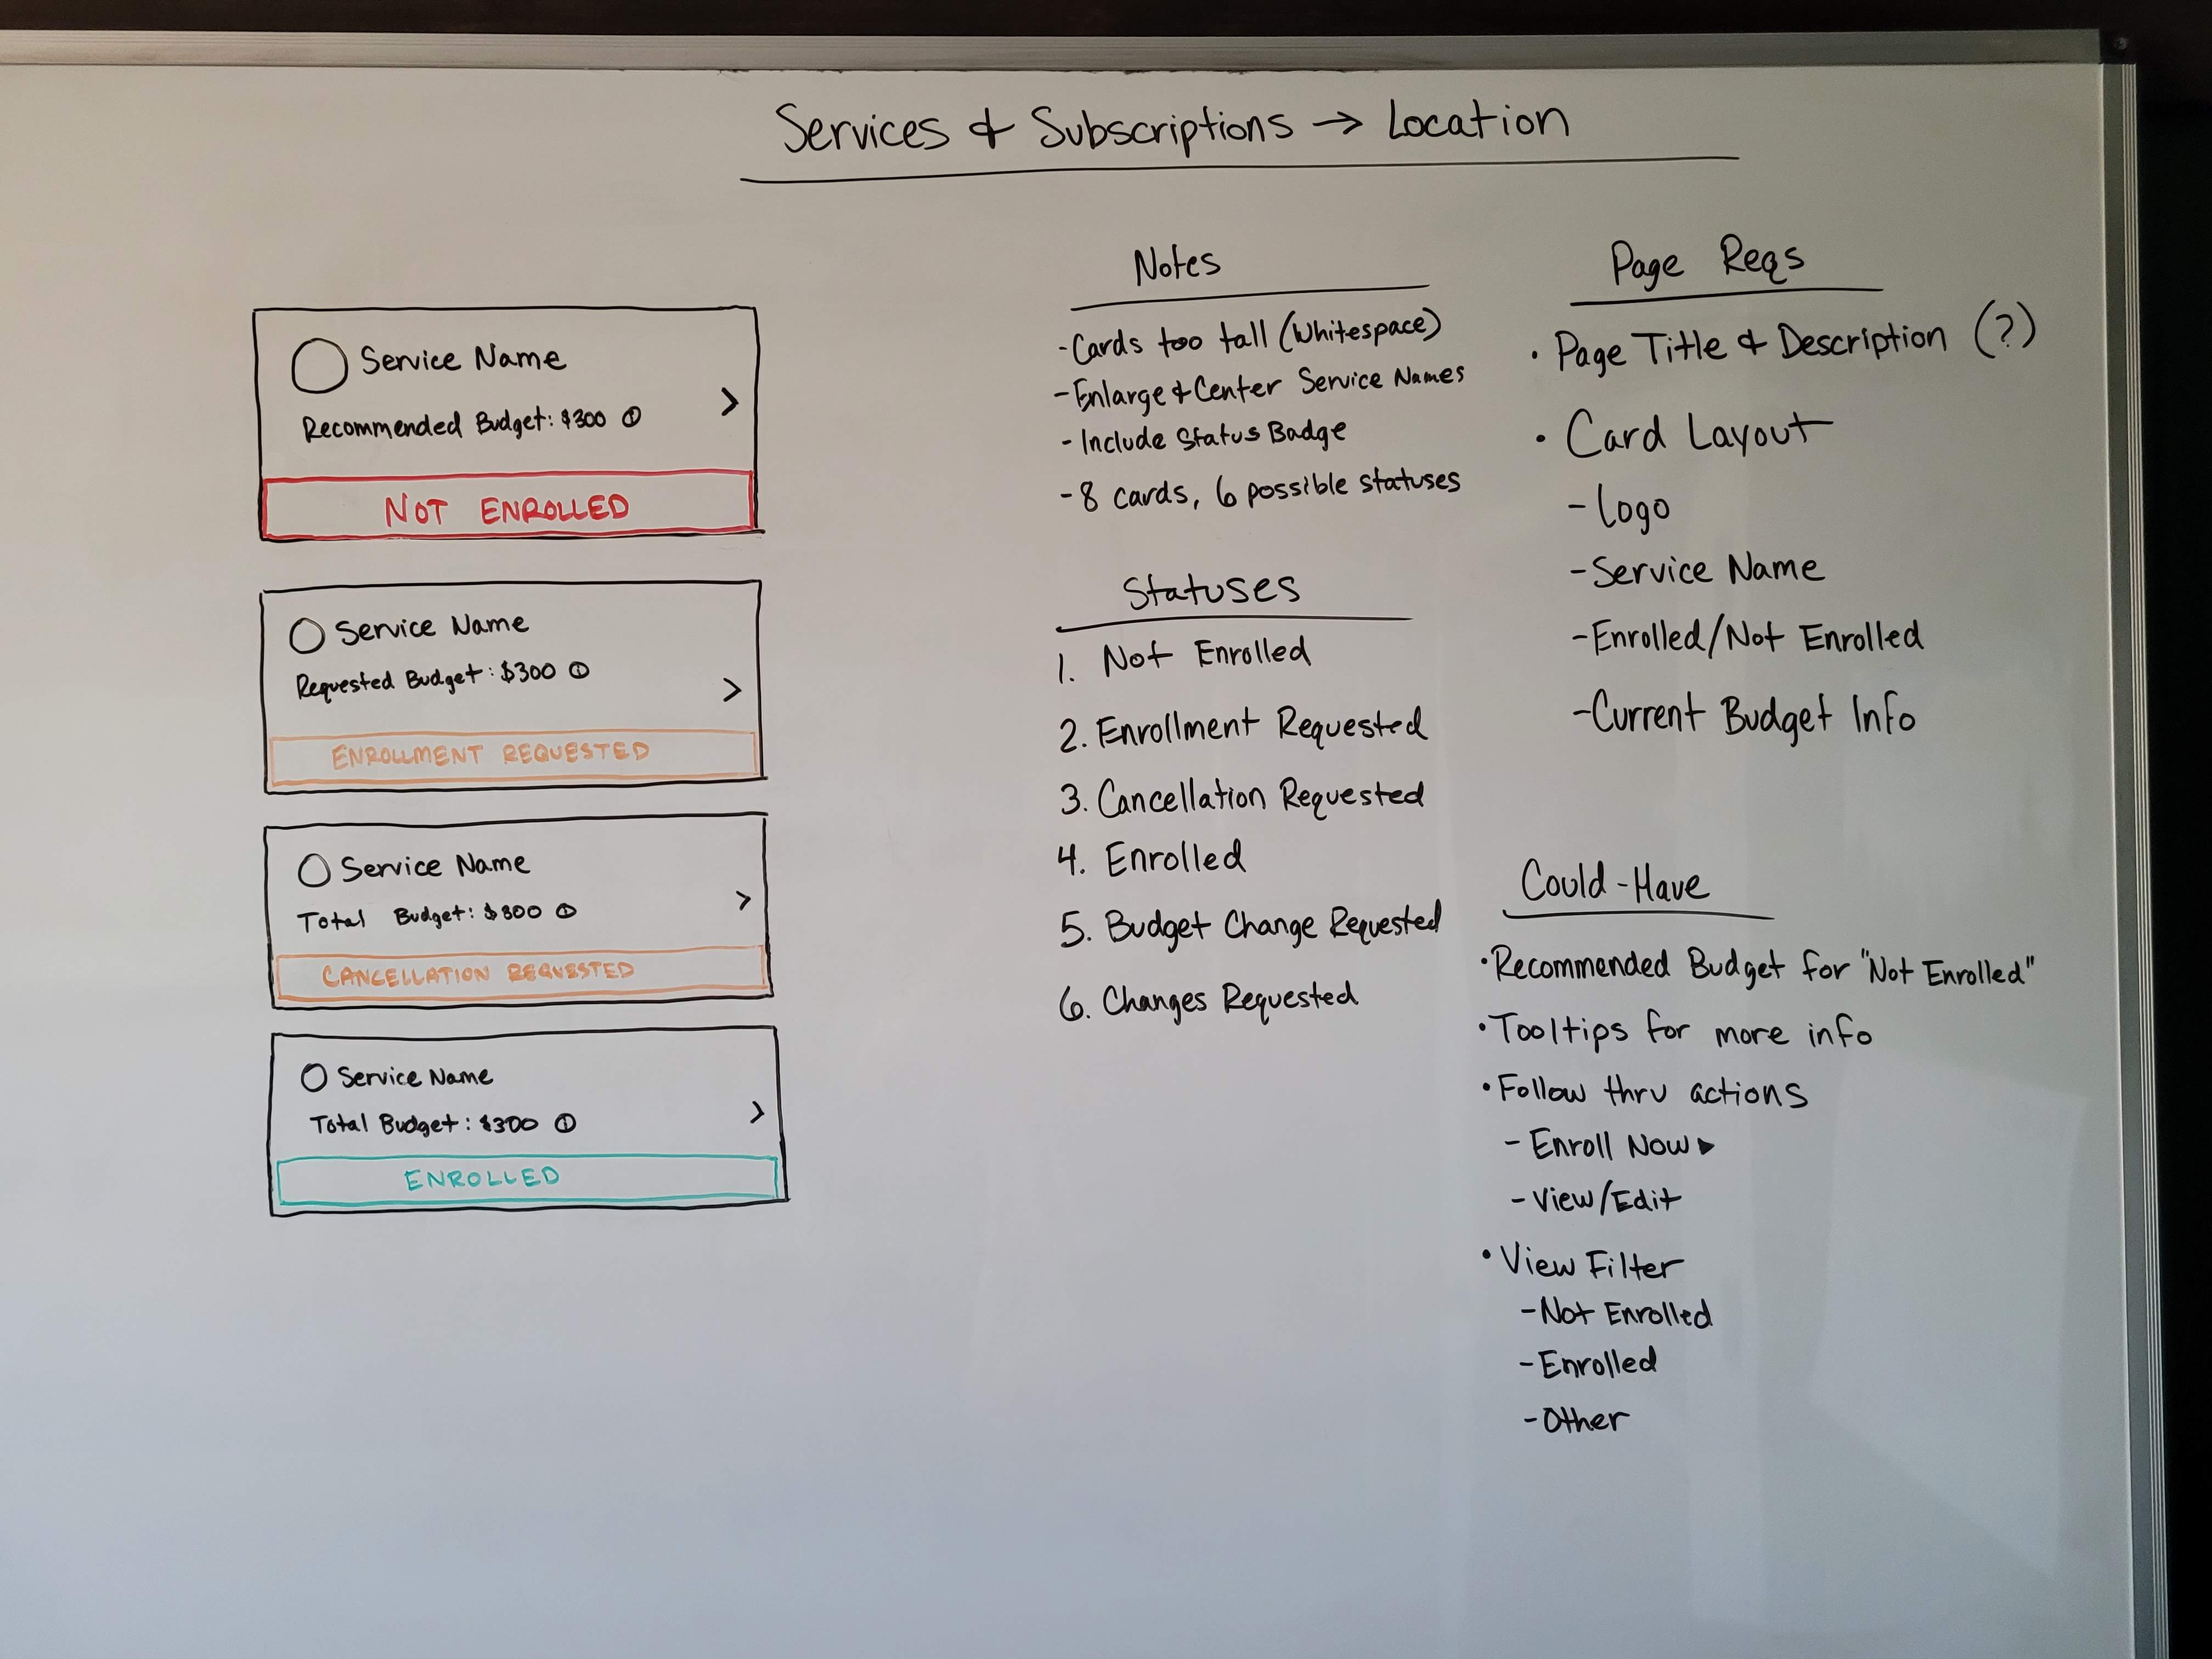 Services & Subscriptions → Location
Service Name
Recommended Budget: $300 ⓘ
>
NOT ENROLLED
Service Name
Requested Budget: $300 ⓘ
>
ENROLLMENT REQUESTED
Service Name
Total Budget: $300 ⓘ
>
CANCELLATION REQUESTED
Service Name
Total Budget: $300 ⓘ
>
ENROLLED
Notes
- Cards too tall (Whitespace)
- Enlarge & Center Service Names
- Include Status Badge
- 8 cards, 6 possible statuses
Statuses
1. Not Enrolled
2. Enrollment Requested
3. Cancellation Requested
4. Enrolled
5. Budget Change Requested
6. Changes Requested
Page Reqs
• Page Title & Description (?)
• Card Layout
- Logo
- Service Name
- Enrolled/Not Enrolled
- Current Budget Info
Could-Have
• Recommended Budget for "Not Enrolled"
• Tooltips for more info
• Follow thru actions
- Enroll Now ▶
- View/Edit
• View Filter
- Not Enrolled
- Enrolled
- Other